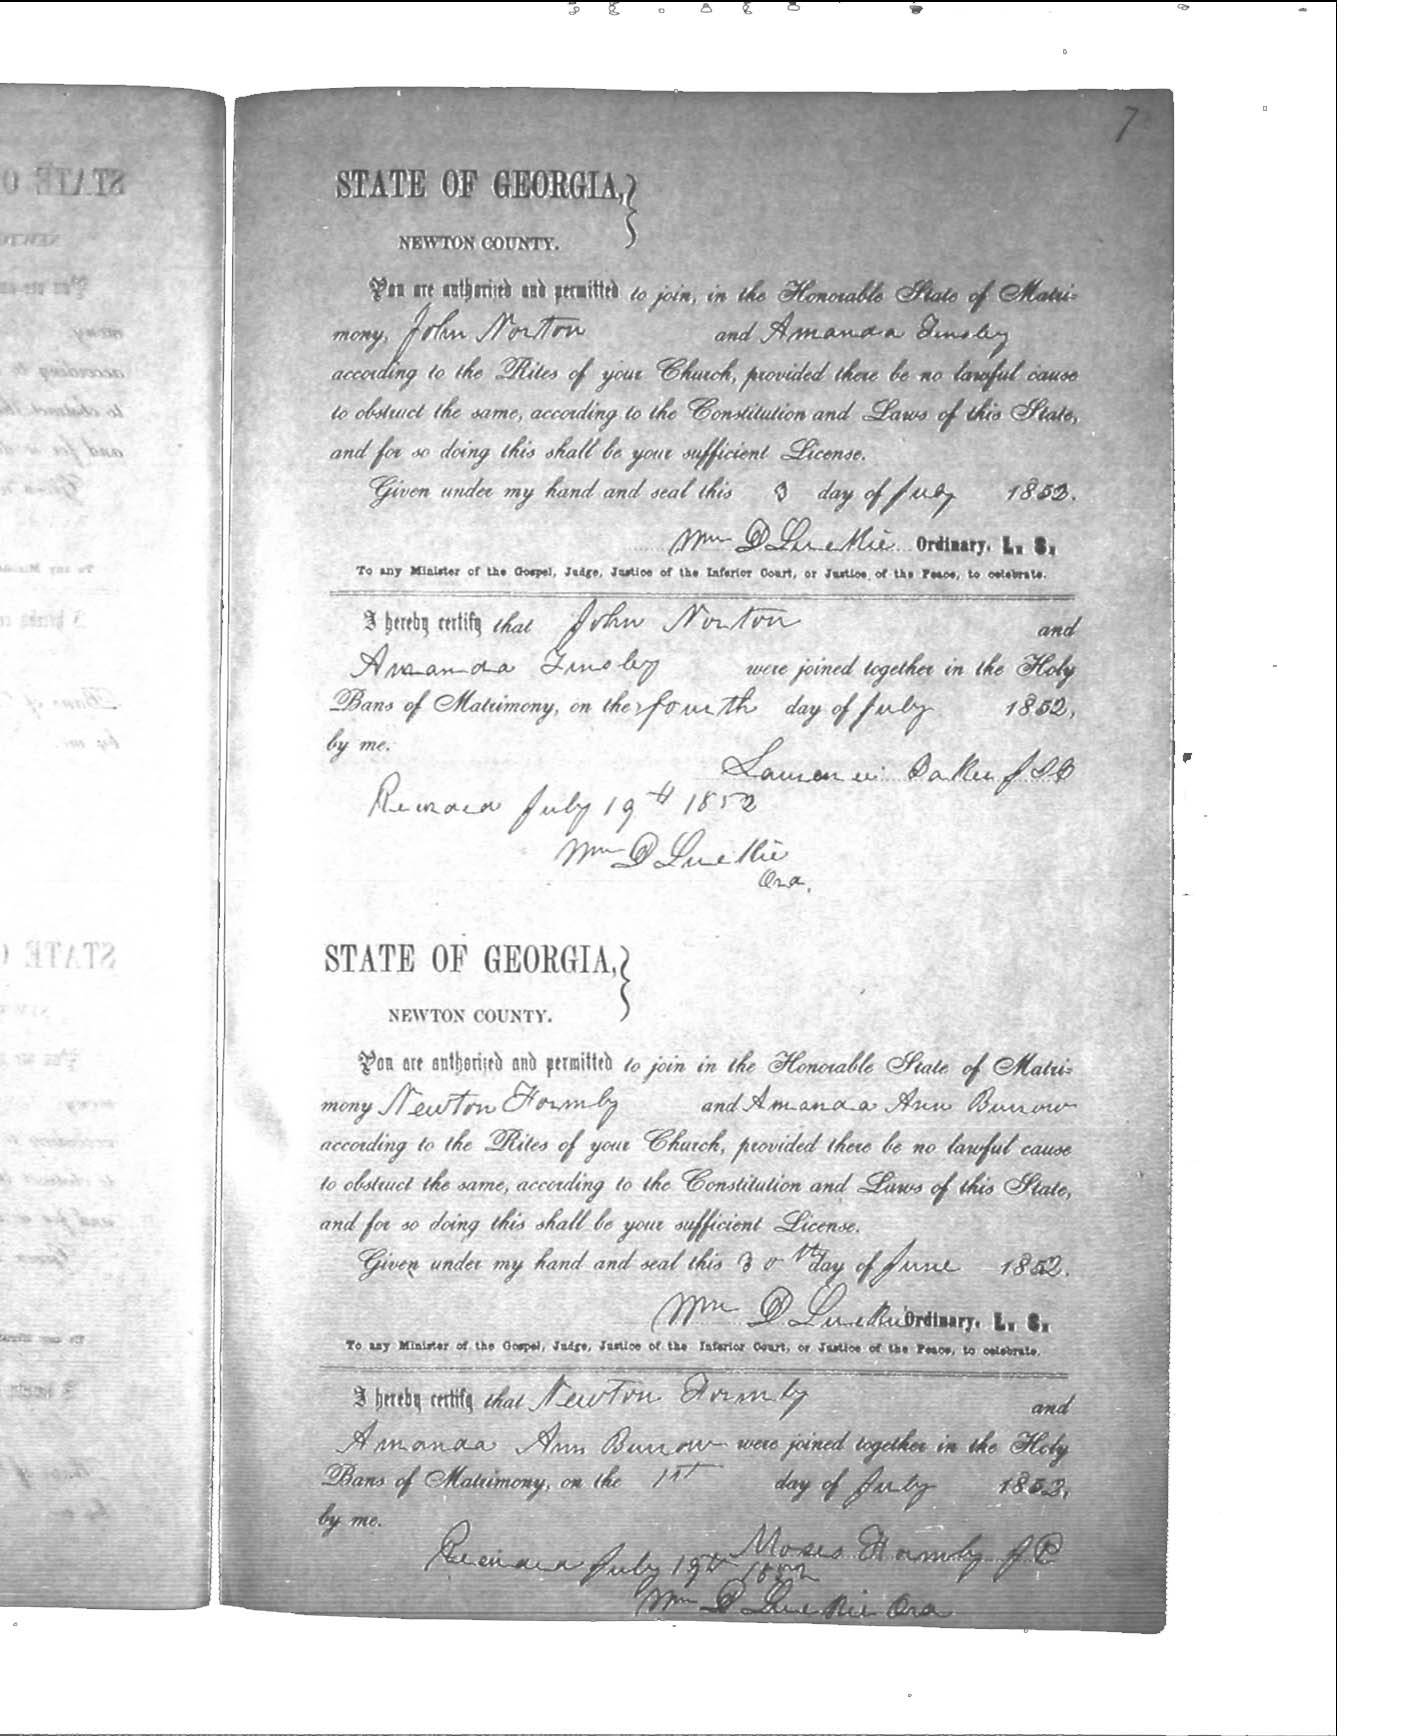 7
STATE OF GEORGIA,
NEWTON COUNTY.
You are authorized and permitted to join, in the Honorable State of Matri-
mony, John Norton and Amanda Tinsley
according to the Rites of your Church, provided there be no lawful cause
to obstruct the same, according to the Constitution and Laws of this State,
and for so doing this shall be your sufficient License.
Given under my hand and seal this 3 day of July 1852.
Wm D Luckie Ordinary, L. S.
To any Minister of the Gospel, Judge, Justice of the Inferior Court, or Justice of the Peace, to celebrate.
I hereby certify that John Norton and
Amanda Tinsley were joined together in the Holy
Bans of Matrimony, on the fourth day of July 1852,
by me.
Baker
Recorded July 19th 1852
Wm D Luckie
Ord.
STATE OF GEORGIA,
NEWTON COUNTY.
You are authorized and permitted to join in the Honorable State of Matri-
mony Newton Formby and Amanda Ann Burrow
according to the Rites of your Church, provided there be no lawful cause
to obstruct the same, according to the Constitution and Laws of this State,
and for so doing this shall be your sufficient License.
Given under my hand and seal this 30th day of June 1852.
Wm D Luckie Ordinary, L. S.
To any Minister of the Gospel, Judge, Justice of the Inferior Court, or Justice of the Peace, to celebrate.
I hereby certify that Newton Formby and
Amanda Ann Burrow were joined together in the Holy
Bans of Matrimony, on the 1st day of July 1852,
by me.
Moses Formby J P
Recorded July 19th 1852
Wm D Luckie Ord